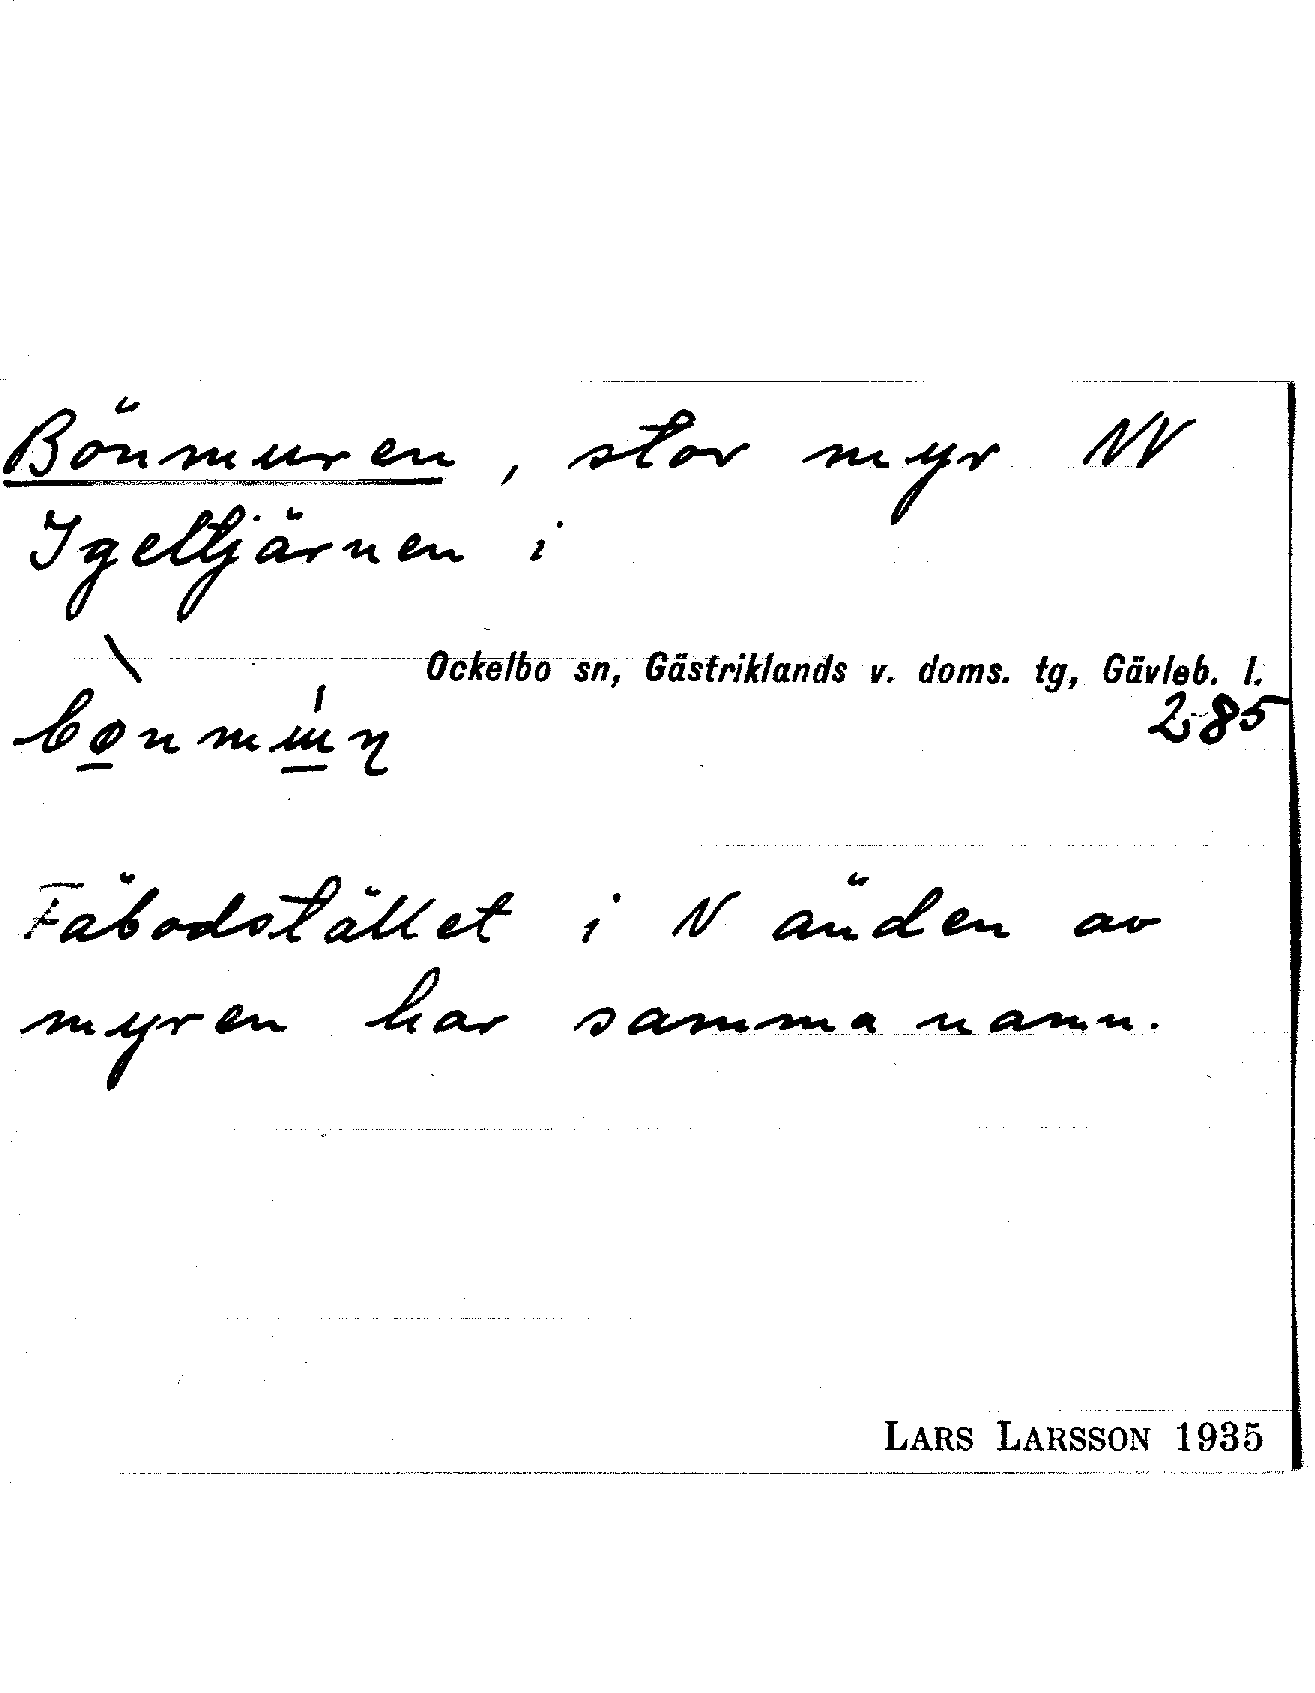 Bönmuren, stor myr NV
Igeltjärnen i
Ockelbo sn, Gästriklands v. doms. tg, Gävleb. l.
285
Fäbodstället i N änden av
myren har samma namn.
LARS LARSSON 1935